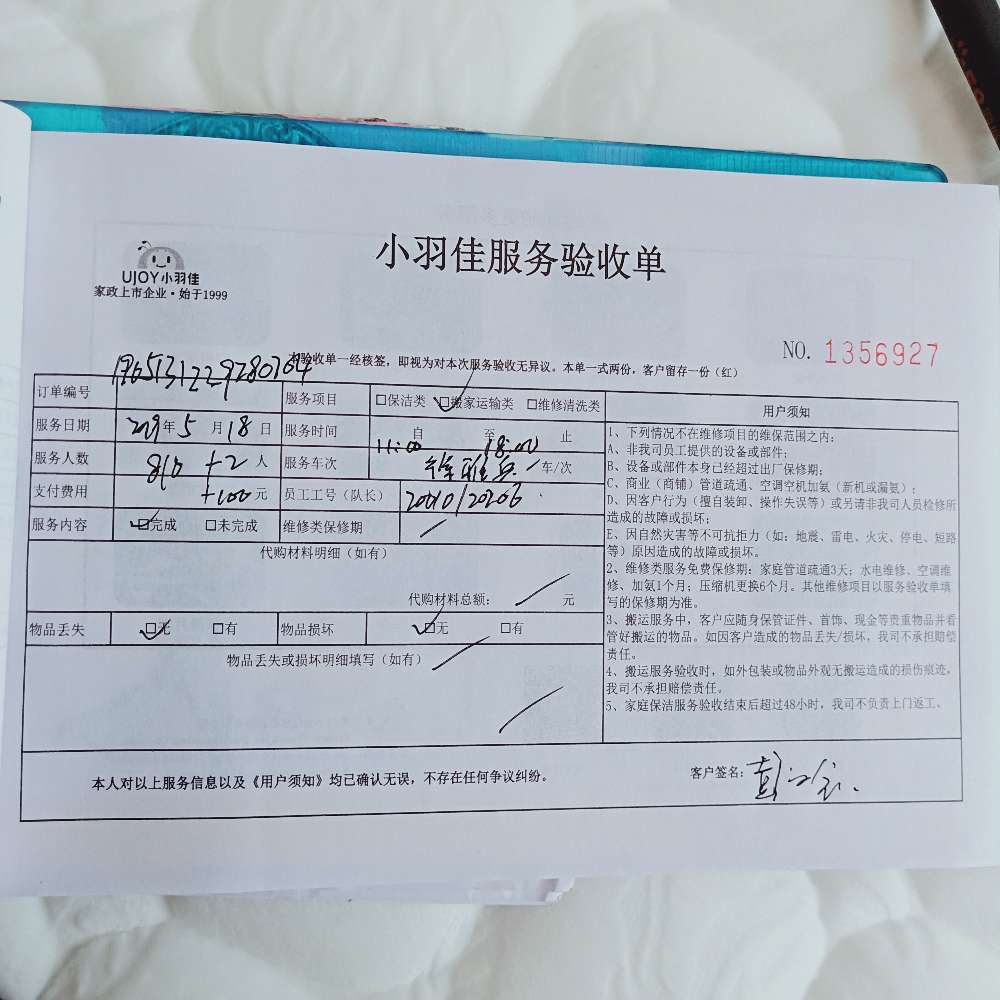 小羽佳服务验收单
UJOY小羽佳
家政上市企业·始于1999
NO. 1356927
本验收单一经核签，即视为对本次服务验收无异议。本单一式两份，客户留存一份（红）
订单编号
服务项目 □保洁类 □搬家运输类 □维修清洗类
服务日期 年5月18日
服务时间 自 11:00 至 18:00 止
服务人数 810 +2 人
服务车次 车/次
支付费用 +100元
员工工号（队长）
服务内容 □完成 □未完成
维修类保修期
代购材料明细（如有）
代购材料总额： 元
物品丢失 □无 □有
物品损坏 □无 □有
物品丢失或损坏明细填写（如有）
用户须知
1、下列情况不在维修项目的维保范围之内：
A、非我司员工提供的设备或部件；
B、设备或部件本身已经超过出厂保修期；
C、商业（商铺）管道疏通、空调空机加氨（新机或漏氨）；
D、因客户行为（擅自装卸、操作失误等）或另请非我司人员检修所
造成的故障或损坏；
E、因自然灾害等不可抗拒力（如：地震、雷电、火灾、停电、短路
等）原因造成的故障或损坏。
2、维修类服务免费保修期：家庭管道疏通3天；水电维修、空调维
修、加氨1个月；压缩机更换6个月。其他维修项目以服务验收单填
写的保修期为准。
3、搬运服务中，客户应随身保管证件、首饰、现金等贵重物品并看
管好搬运的物品。如因客户造成的物品丢失/损坏，我司不承担赔偿
责任。
4、搬运服务验收时，如外包装或物品外观无搬运造成的损伤痕迹，
我司不承担赔偿责任。
5、家庭保洁服务验收结束后超过48小时，我司不负责上门返工。
本人对以上服务信息以及《用户须知》均已确认无误，不存在任何争议纠纷。
客户签名：